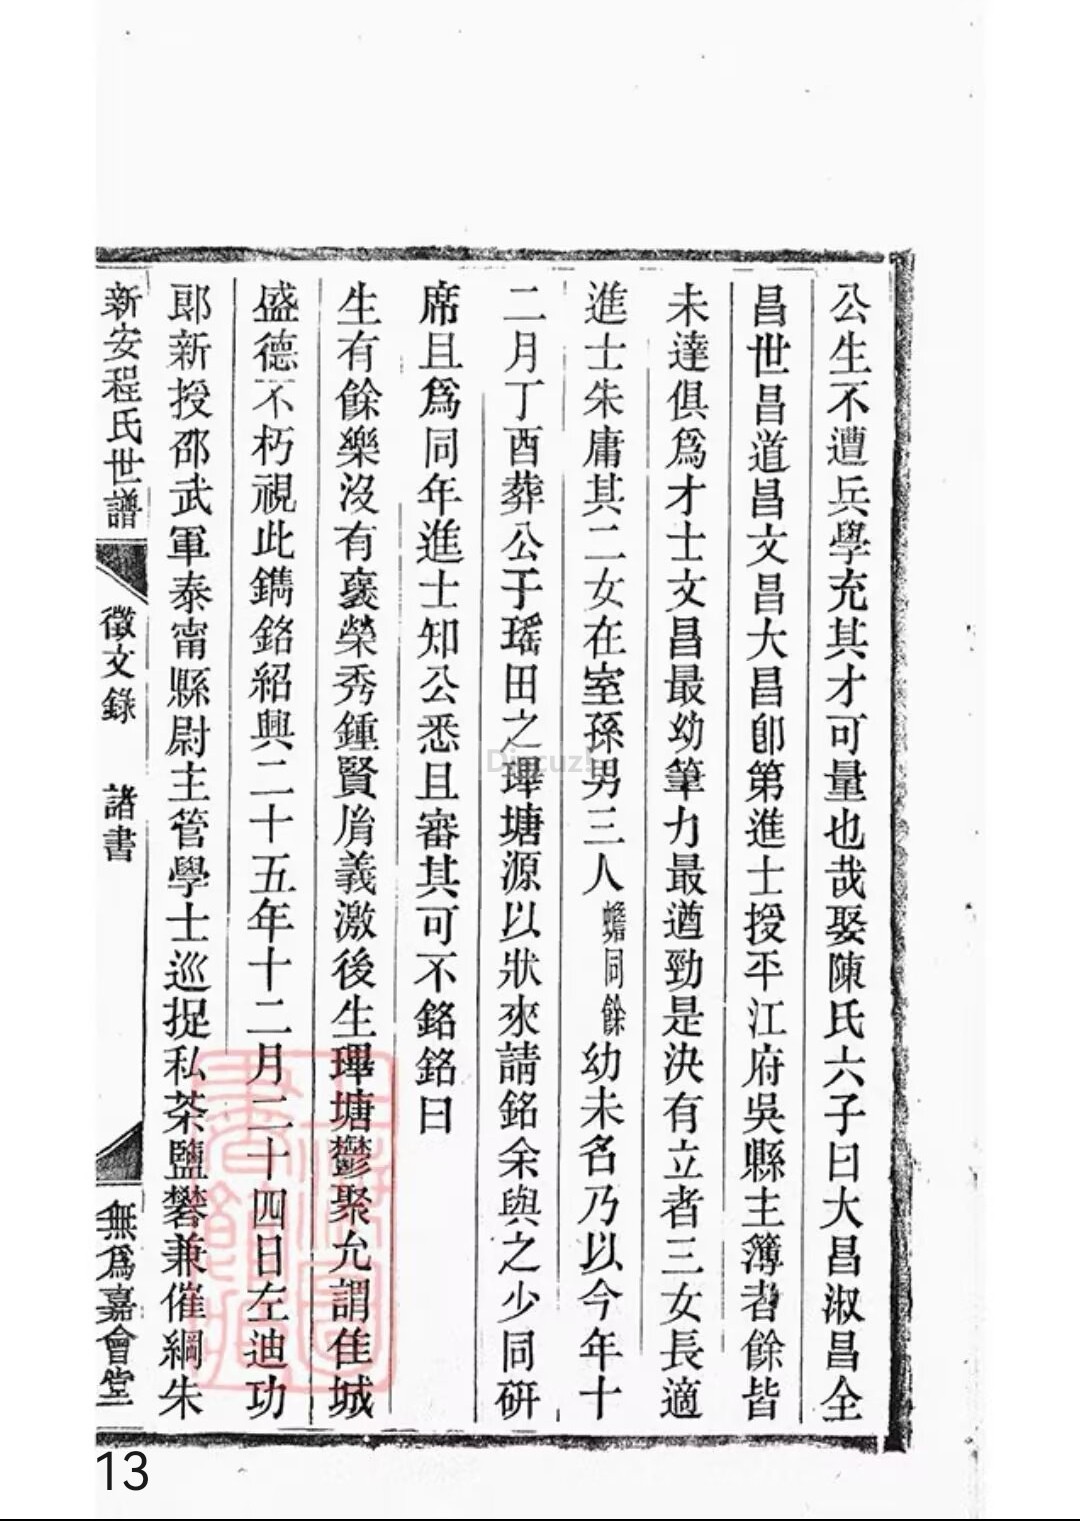 公生不遭兵學充其才可量也哉娶陳氏六子曰大昌淑昌全
昌世昌道昌文昌大昌卽第進士授平江府吳縣主簿者餘皆
未達俱爲才士文昌最幼筆力最遒勁是決有立者三女長適
進士朱庸其二女在室孫男三人蟾同餘幼未名乃以今年十
二月丁酉葬公于瑤田之墿塘源以狀來請銘余與之少同硏
席且爲同年進士知公悉且審其可不銘銘曰
生有餘樂沒有襃榮秀鍾賢胤義激後生墿塘鬱聚允謂佳城
盛德不朽視此鐫銘紹興二十五年十二月二十四日左迪功
郎新授邵武軍泰甯縣尉主管學士巡捉私茶鹽礬兼催綱朱
新安程氏世譜
徵文錄 諸書
無爲嘉會堂
Discuz!
13